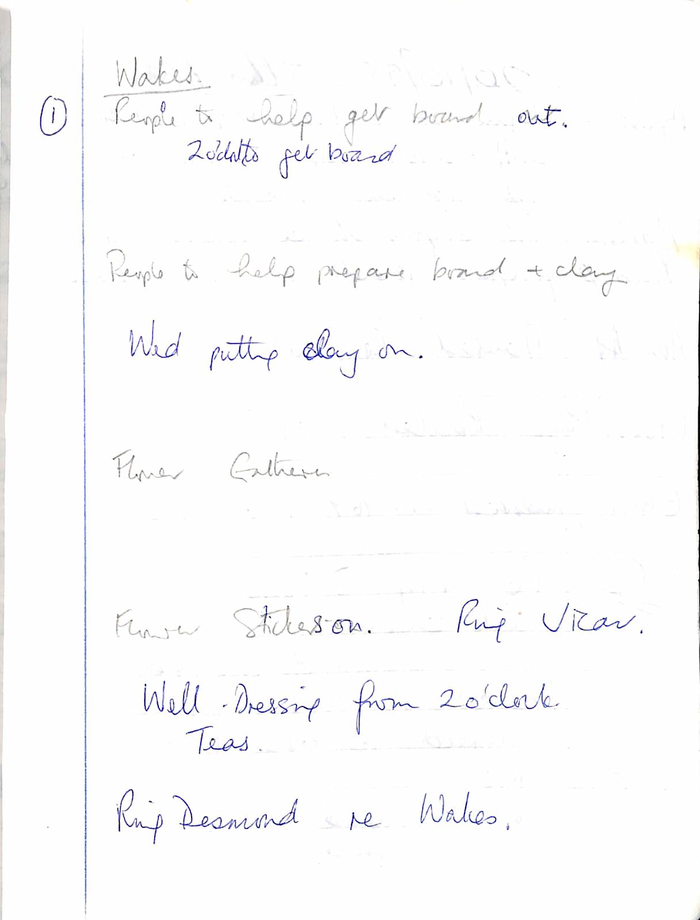 Wakes.
① People to help get board out.
2 o'clk to get board
People to help prepare board + clay
Wed putting clay on.
Flower Gatherers
Flower Stickers on. Ring Vicar.
Well-Dressing from 2 o'clock.
Teas.
Ring Desmond re Wakes.